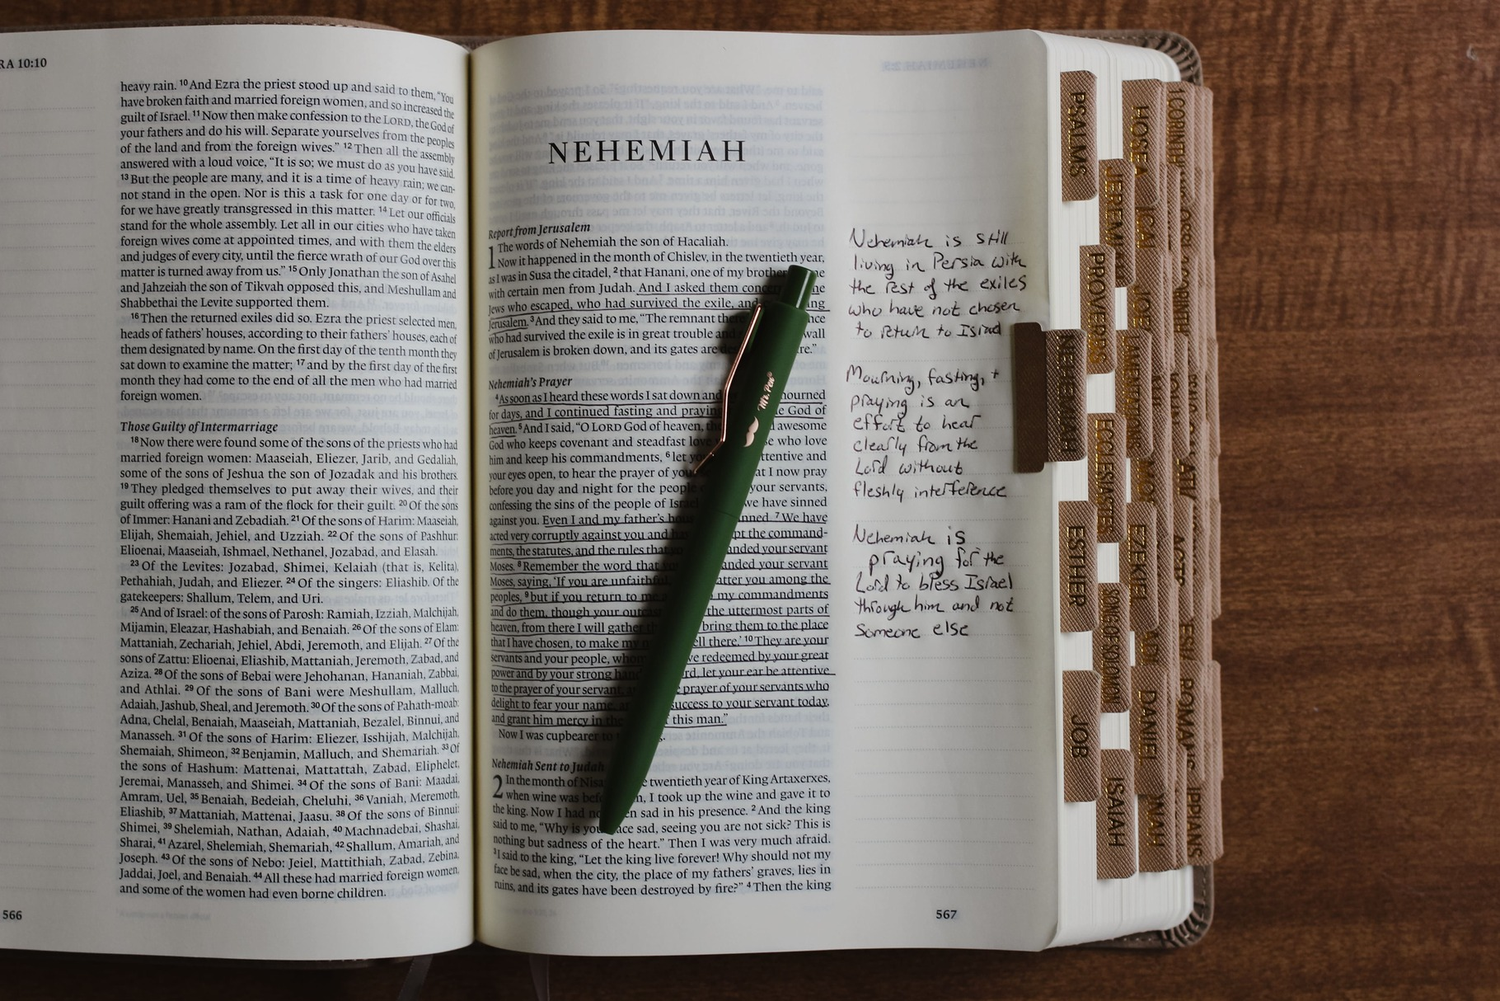 RA 10:10
heavy rain. 10 And Ezra the priest stood up and said to them, “You
have broken faith and married foreign women, and so increased the
guilt of Israel. 11 Now then make confession to the LORD, the God of
your fathers and do his will. Separate yourselves from the peoples
of the land and from the foreign wives.” 12 Then all the assembly
answered with a loud voice, “It is so; we must do as you have said.
13 But the people are many, and it is a time of heavy rain; we can-
not stand in the open. Nor is this a task for one day or for two,
for we have greatly transgressed in this matter. 14 Let our officials
stand for the whole assembly. Let all in our cities who have taken
foreign wives come at appointed times, and with them the elders
and judges of every city, until the fierce wrath of our God over this
matter is turned away from us.” 15 Only Jonathan the son of Asahel
and Jahzeiah the son of Tikvah opposed this, and Meshullam and
Shabbethai the Levite supported them.
16 Then the returned exiles did so. Ezra the priest selected men,
heads of fathers’ houses, according to their fathers’ houses, each of
them designated by name. On the first day of the tenth month they
sat down to examine the matter; 17 and by the first day of the first
month they had come to the end of all the men who had married
foreign women.
Those Guilty of Intermarriage
18 Now there were found some of the sons of the priests who had
married foreign women: Maaseiah, Eliezer, Jarib, and Gedaliah,
some of the sons of Jeshua the son of Jozadak and his brothers.
19 They pledged themselves to put away their wives, and their
guilt offering was a ram of the flock for their guilt. 20 Of the sons
of Immer: Hanani and Zebadiah. 21 Of the sons of Harim: Maaseiah,
Elijah, Shemaiah, Jehiel, and Uzziah. 22 Of the sons of Pashhur:
Elioenai, Maaseiah, Ishmael, Nethanel, Jozabad, and Elasah.
23 Of the Levites: Jozabad, Shimei, Kelaiah (that is, Kelita),
Pethahiah, Judah, and Eliezer. 24 Of the singers: Eliashib. Of the
gatekeepers: Shallum, Telem, and Uri.
25 And of Israel: of the sons of Parosh: Ramiah, Izziah, Malchijah,
Mijamin, Eleazar, Hashabiah, and Benaiah. 26 Of the sons of Elam:
Mattaniah, Zechariah, Jehiel, Abdi, Jeremoth, and Elijah. 27 Of the
sons of Zattu: Elioenai, Eliashib, Mattaniah, Jeremoth, Zabad, and
Aziza. 28 Of the sons of Bebai were Jehohanan, Hananiah, Zabbai,
and Athlai. 29 Of the sons of Bani were Meshullam, Malluch,
Adaiah, Jashub, Sheal, and Jeremoth. 30 Of the sons of Pahath-moab:
Adna, Chelal, Benaiah, Maaseiah, Mattaniah, Bezalel, Binnui, and
Manasseh. 31 Of the sons of Harim: Eliezer, Isshijah, Malchijah,
Shemaiah, Shimeon, 32 Benjamin, Malluch, and Shemariah. 33 Of
the sons of Hashum: Mattenai, Mattattah, Zabad, Eliphelet,
Jeremai, Manasseh, and Shimei. 34 Of the sons of Bani: Maadai,
Amram, Uel, 35 Benaiah, Bedeiah, Cheluhi, 36 Vaniah, Meremoth,
Eliashib, 37 Mattaniah, Mattenai, Jaasu. 38 Of the sons of Binnui:
Shimei, 39 Shelemiah, Nathan, Adaiah, 40 Machnadebai, Shashai,
Sharai, 41 Azarel, Shelemiah, Shemariah, 42 Shallum, Amariah, and
Joseph. 43 Of the sons of Nebo: Jeiel, Mattithiah, Zabad, Zebina,
Jaddai, Joel, and Benaiah. 44 All these had married foreign women,
and some of the women had even borne children.
566
NEHEMIAH
Report from Jerusalem
1 The words of Nehemiah the son of Hacaliah.
Now it happened in the month of Chislev, in the twentieth year,
as I was in Susa the citadel, 2 that Hanani, one of my brothe
with certain men from Judah. And I asked them conce he
Jews who escaped, who had survived the exile, and ing
Jerusalem. 3 And they said to me, “The remnant the nce
who had survived the exile is in great trouble and wall
of Jerusalem is broken down, and its gates are d re.”
Nehemiah’s Prayer
4 As soon as I heard these words I sat down and ourned
for days, and I continued fasting and prayin e God of
heaven. 5 And I said, “O LORD God of heaven, th awesome
God who keeps covenant and steadfast lov e who love
him and keep his commandments, 6 let yo ttentive and
your eyes open, to hear the prayer of you at I now pray
before you day and night for the people your servants,
confessing the sins of the people of Isra we have sinned
against you. Even I and my father’s hou nned. 7 We have
acted very corruptly against you and ha pt the command-
ments, the statutes, and the rules that anded your servant
Moses. 8 Remember the word that nded your servant
Moses, saying, ‘If you are unfaithful atter you among the
peoples, 9 but if you return to me my commandments
and do them, though your outcas the uttermost parts of
heaven, from there I will gather bring them to the place
that I have chosen, to make my ell there.’ 10 They are your
servants and your people, whom e redeemed by your great
power and by your strong hand rd, let your ear be attentive
to the prayer of your servant, a prayer of your servants who
delight to fear your name, a success to your servant today,
and grant him mercy in the this man.”
Now I was cupbearer to
Nehemiah Sent to Judah
2 In the month of Nisa e twentieth year of King Artaxerxes,
when wine was befo , I took up the wine and gave it to
the king. Now I had no en sad in his presence. 2 And the king
said to me, “Why is you ace sad, seeing you are not sick? This is
nothing but sadness of the heart.” Then I was very much afraid.
3 I said to the king, “Let the king live forever! Why should not my
face be sad, when the city, the place of my fathers’ graves, lies in
ruins, and its gates have been destroyed by fire?” 4 Then the king
567
Mr. Pen
Nehemiah is still
living in Persia with
the rest of the exiles
who have not chosen
to return to Israel
Mourning, fasting, +
praying is an
effort to hear
clearly from the
Lord without
fleshly interference
Nehemiah is
praying for the
Lord to bless Israel
through him and not
someone else
PSALMS
PROVERBS
NEHEMIAH
ECCLESIASTES
ESTHER
SONG OF SOLOMON
JOB
ISAIAH
HOSEA
EZEKIEL
DANIEL